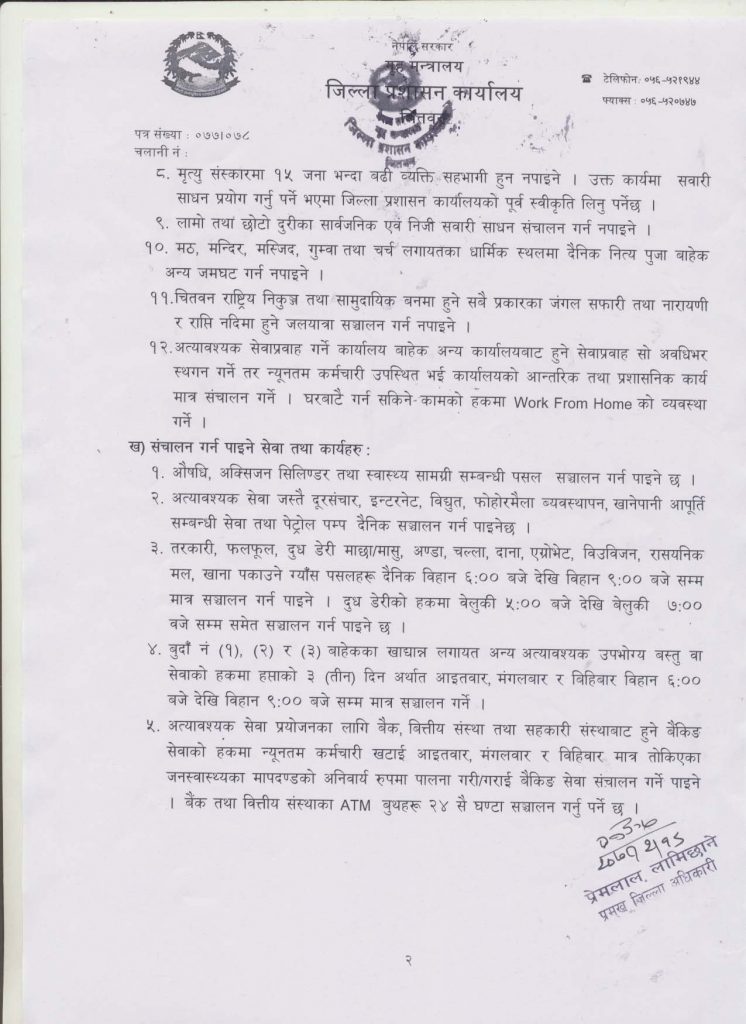 नेपाल सरकार
गृह मन्त्रालय
जिल्ला प्रशासन कार्यालय
चितवन
☎ टेलिफोन: ०५६-५२१९४४
फ्याक्स : ०५६-५२०७४७
पत्र संख्या : ०७७।०७८
चलानी नं :
जिल्ला प्रशासन कार्यालय
चितवन
८. मृत्यु संस्कारमा १५ जना भन्दा वढी व्यक्ति सहभागी हुन नपाइने । उक्त कार्यमा सवारी
साधन प्रयोग गर्नु पर्ने भएमा जिल्ला प्रशासन कार्यालयको पूर्व स्वीकृति लिनु पर्नेछ ।
९. लामो तथा छोटो दुरीका सार्वजनिक एवं निजी सवारी साधन संचालन गर्न नपाइने ।
१०. मठ, मन्दिर, मस्जिद, गुम्वा तथा चर्च लगायतका धार्मिक स्थलमा दैनिक नित्य पुजा बाहेक
अन्य जमघट गर्न नपाइने ।
११.चितवन राष्ट्रिय निकुञ्ज तथा सामुदायिक बनमा हुने सवै प्रकारका जंगल सफारी तथा नारायणी
र राप्ति नदिमा हुने जलयात्रा सञ्चालन गर्न नपाइने ।
१२.अत्यावश्यक सेवाप्रवाह गर्ने कार्यालय बाहेक अन्य कार्यालयवाट हुने सेवाप्रवाह सो अवधिभर
स्थगन गर्ने तर न्यूनतम कर्मचारी उपस्थित भई कार्यालयको आन्तरिक तथा प्रशासनिक कार्य
मात्र संचालन गर्ने । घरबाटै गर्न सकिने कामको हकमा Work From Home को व्यवस्था
गर्ने ।
ख) संचालन गर्न पाइने सेवा तथा कार्यहरु :
१. औषधि, अक्सिजन सिलिण्डर तथा स्वास्थ्य सामग्री सम्बन्धी पसल सञ्चालन गर्न पाइने छ ।
२. अत्यावश्यक सेवा जस्तै दूरसंचार, इन्टरनेट, विद्युत, फोहोरमैला व्यवस्थापन, खानेपानी आपूर्ति
सम्बन्धी सेवा तथा पेट्रोल पम्प दैनिक सञ्चालन गर्न पाइनेछ ।
३. तरकारी, फलफूल, दुध डेरी माछा/मासु, अण्डा, चल्ला, दाना, एग्रोभेट, विउविजन, रासयनिक
मल, खाना पकाउने ग्याँस पसलहरू दैनिक विहान ६:०० बजे देखि विहान ९:०० बजे सम्म
मात्र सञ्चालन गर्न पाइने । दुध डेरीको हकमा वेलुकी ५:०० बजे देखि बेलुकी ७:००
बजे सम्म समेत सञ्चालन गर्न पाइने छ ।
४. बुदाँ नं (१), (२) र (३) बाहेकका खाद्यान्न लगायत अन्य अत्यावश्यक उपभोग्य बस्तु वा
सेवाको हकमा हप्ताको ३ (तीन) दिन अर्थात आइतवार, मंगलवार र बिहिबार विहान ६:००
बजे देखि विहान ९:०० बजे सम्म मात्र सञ्चालन गर्ने ।
५. अत्यावश्यक सेवा प्रयोजनका लागि बैक, बित्तीय संस्था तथा सहकारी संस्थाबाट हुने बैकिङ
सेवाको हकमा न्यूनतम कर्मचारी खटाई आइतवार, मंगलवार र विहिवार मात्र तोकिएका
जनस्वास्थ्यका मापदण्डको अनिवार्य रुपमा पालना गरी/गराई बैकिङ सेवा संचालन गर्ने पाइने
। बैंक तथा वित्तीय संस्थाका ATM बुथहरू २४ सै घण्टा सञ्चालन गर्नु पर्ने छ ।
प्रेमलाल लामिछाने
प्रमुख जिल्ला अधिकारी
२